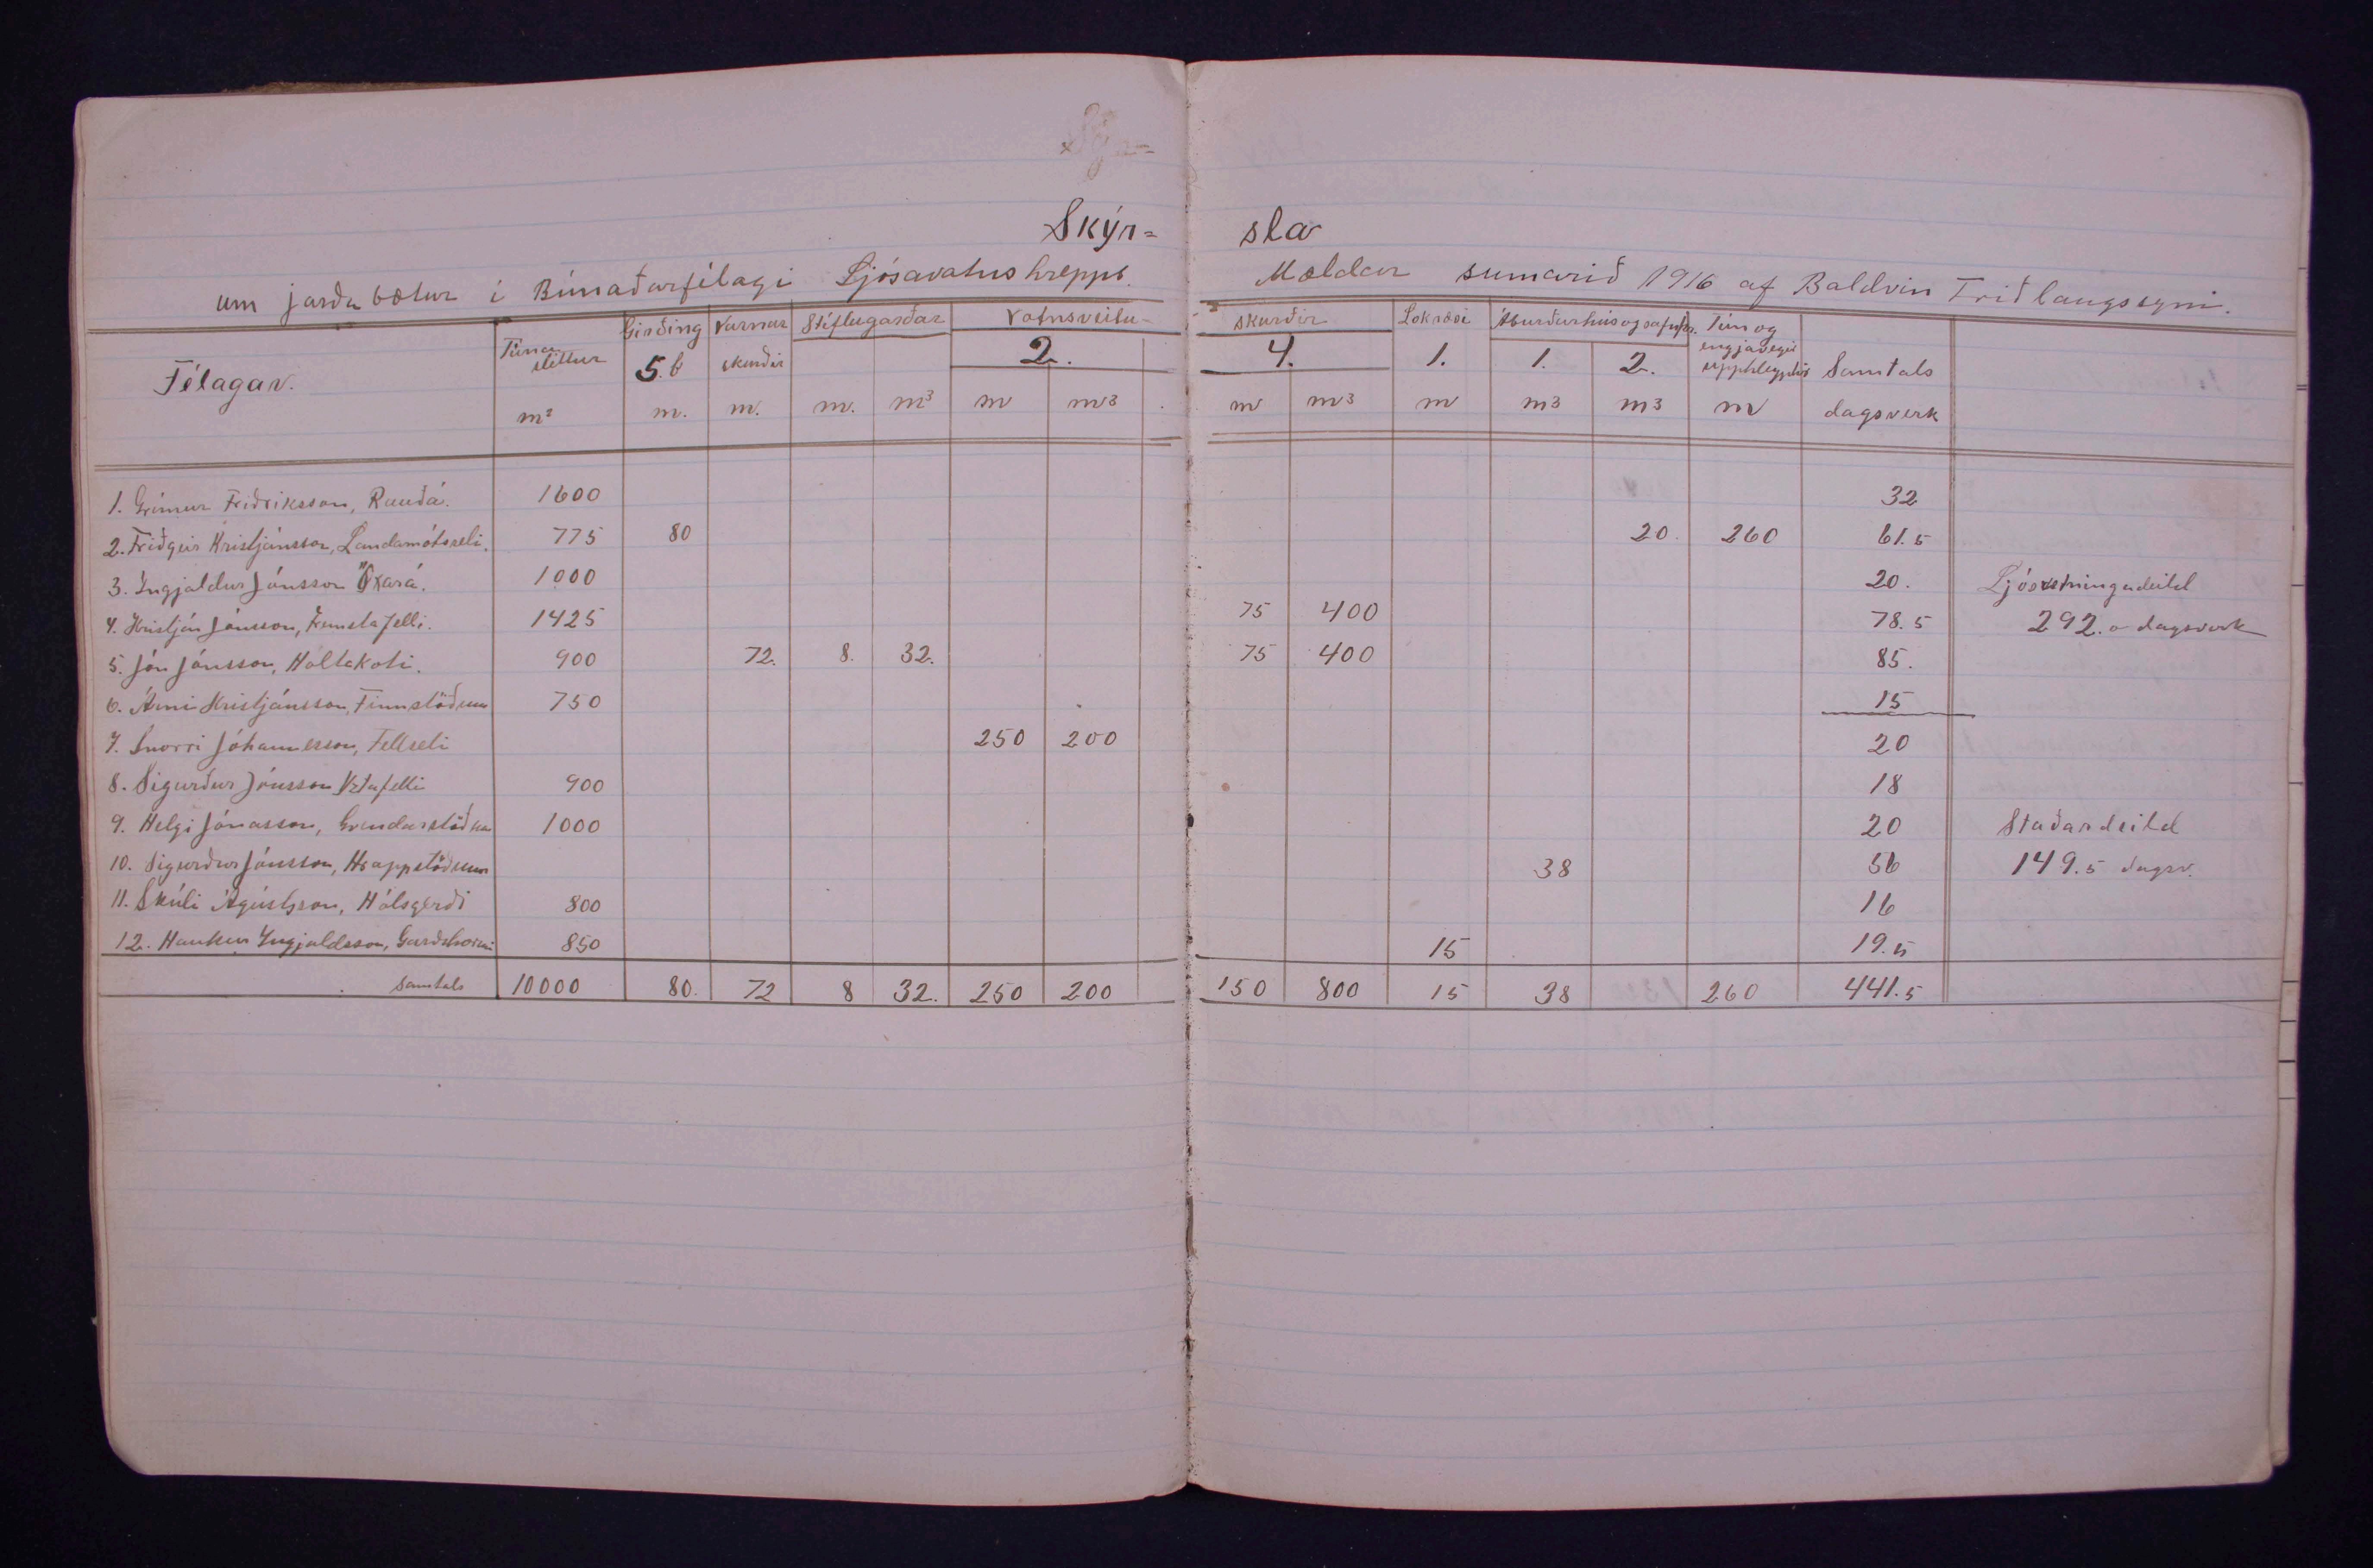 Skýr= sla
um jarðabætur í Búnaðarfélagi Ljósavatnshrepps. Mældar sumarið 1916 af Baldvin Friðlaugssyni.
Félagar. Túna sléttur Girðing Varnar skurðir Stíflugarðar Vatnsveitu- skurðir Lokræsi Áburðarhús og safnþr. Tún og engjavegir upphleyptir Samtals dagsverk
5.b 2. 4. 1. 1. 2.
m² m. m. m. m³ m m3 m m3 m m3 m3 m
1. Grímur Friðriksson, Rauðá. 1600 32
2. Friðgeir Kristjánsson, Landamótsseli. 775 80 20. 260 61.5
3. Ingjaldur Jónsson Öxará. 1000 20. Ljósvetningadeild
4. Kristján Jónsson, Fremstafelli. 1425 75 400 78.5 292.0 dagsverk
5. Jón Jónsson, Holtakoti. 900 72. 8. 32. 75 400 85.
6. Árni Kristjánsson, Finnstöðum 750 15
7. Snorri Jóhannesson, Fellseli 250 200 20
8. Sigurður Jónsson Yztafelli 900 18
9. Helgi Jónasson, Gvendarstöðum 1000 20 Staðardeild
10. Sigurður Jónsson, Hrappstöðum 38 56 149.5 dagsv.
11. Skúli Ágústsson, Hálsgerði 800 16
12. Haukur Ingjaldsson, Garðshorni 850 15 19.5
Samtals 10000 80. 72 8 32. 250 200 150 800 15 38 260 441.5